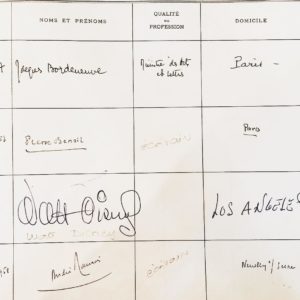 NOMS ET PRÉNOMS
QUALITÉ
OU
PROFESSION
DOMICILE
Jacques Bordeneuve
Ministre des Arts
et Lettres
Paris -
Pierre Benoit
écrivain
Paris
Walt Disney
WALT DISNEY
LOS ANGELES
André Maurois
écrivain
Neuilly s/ Seine